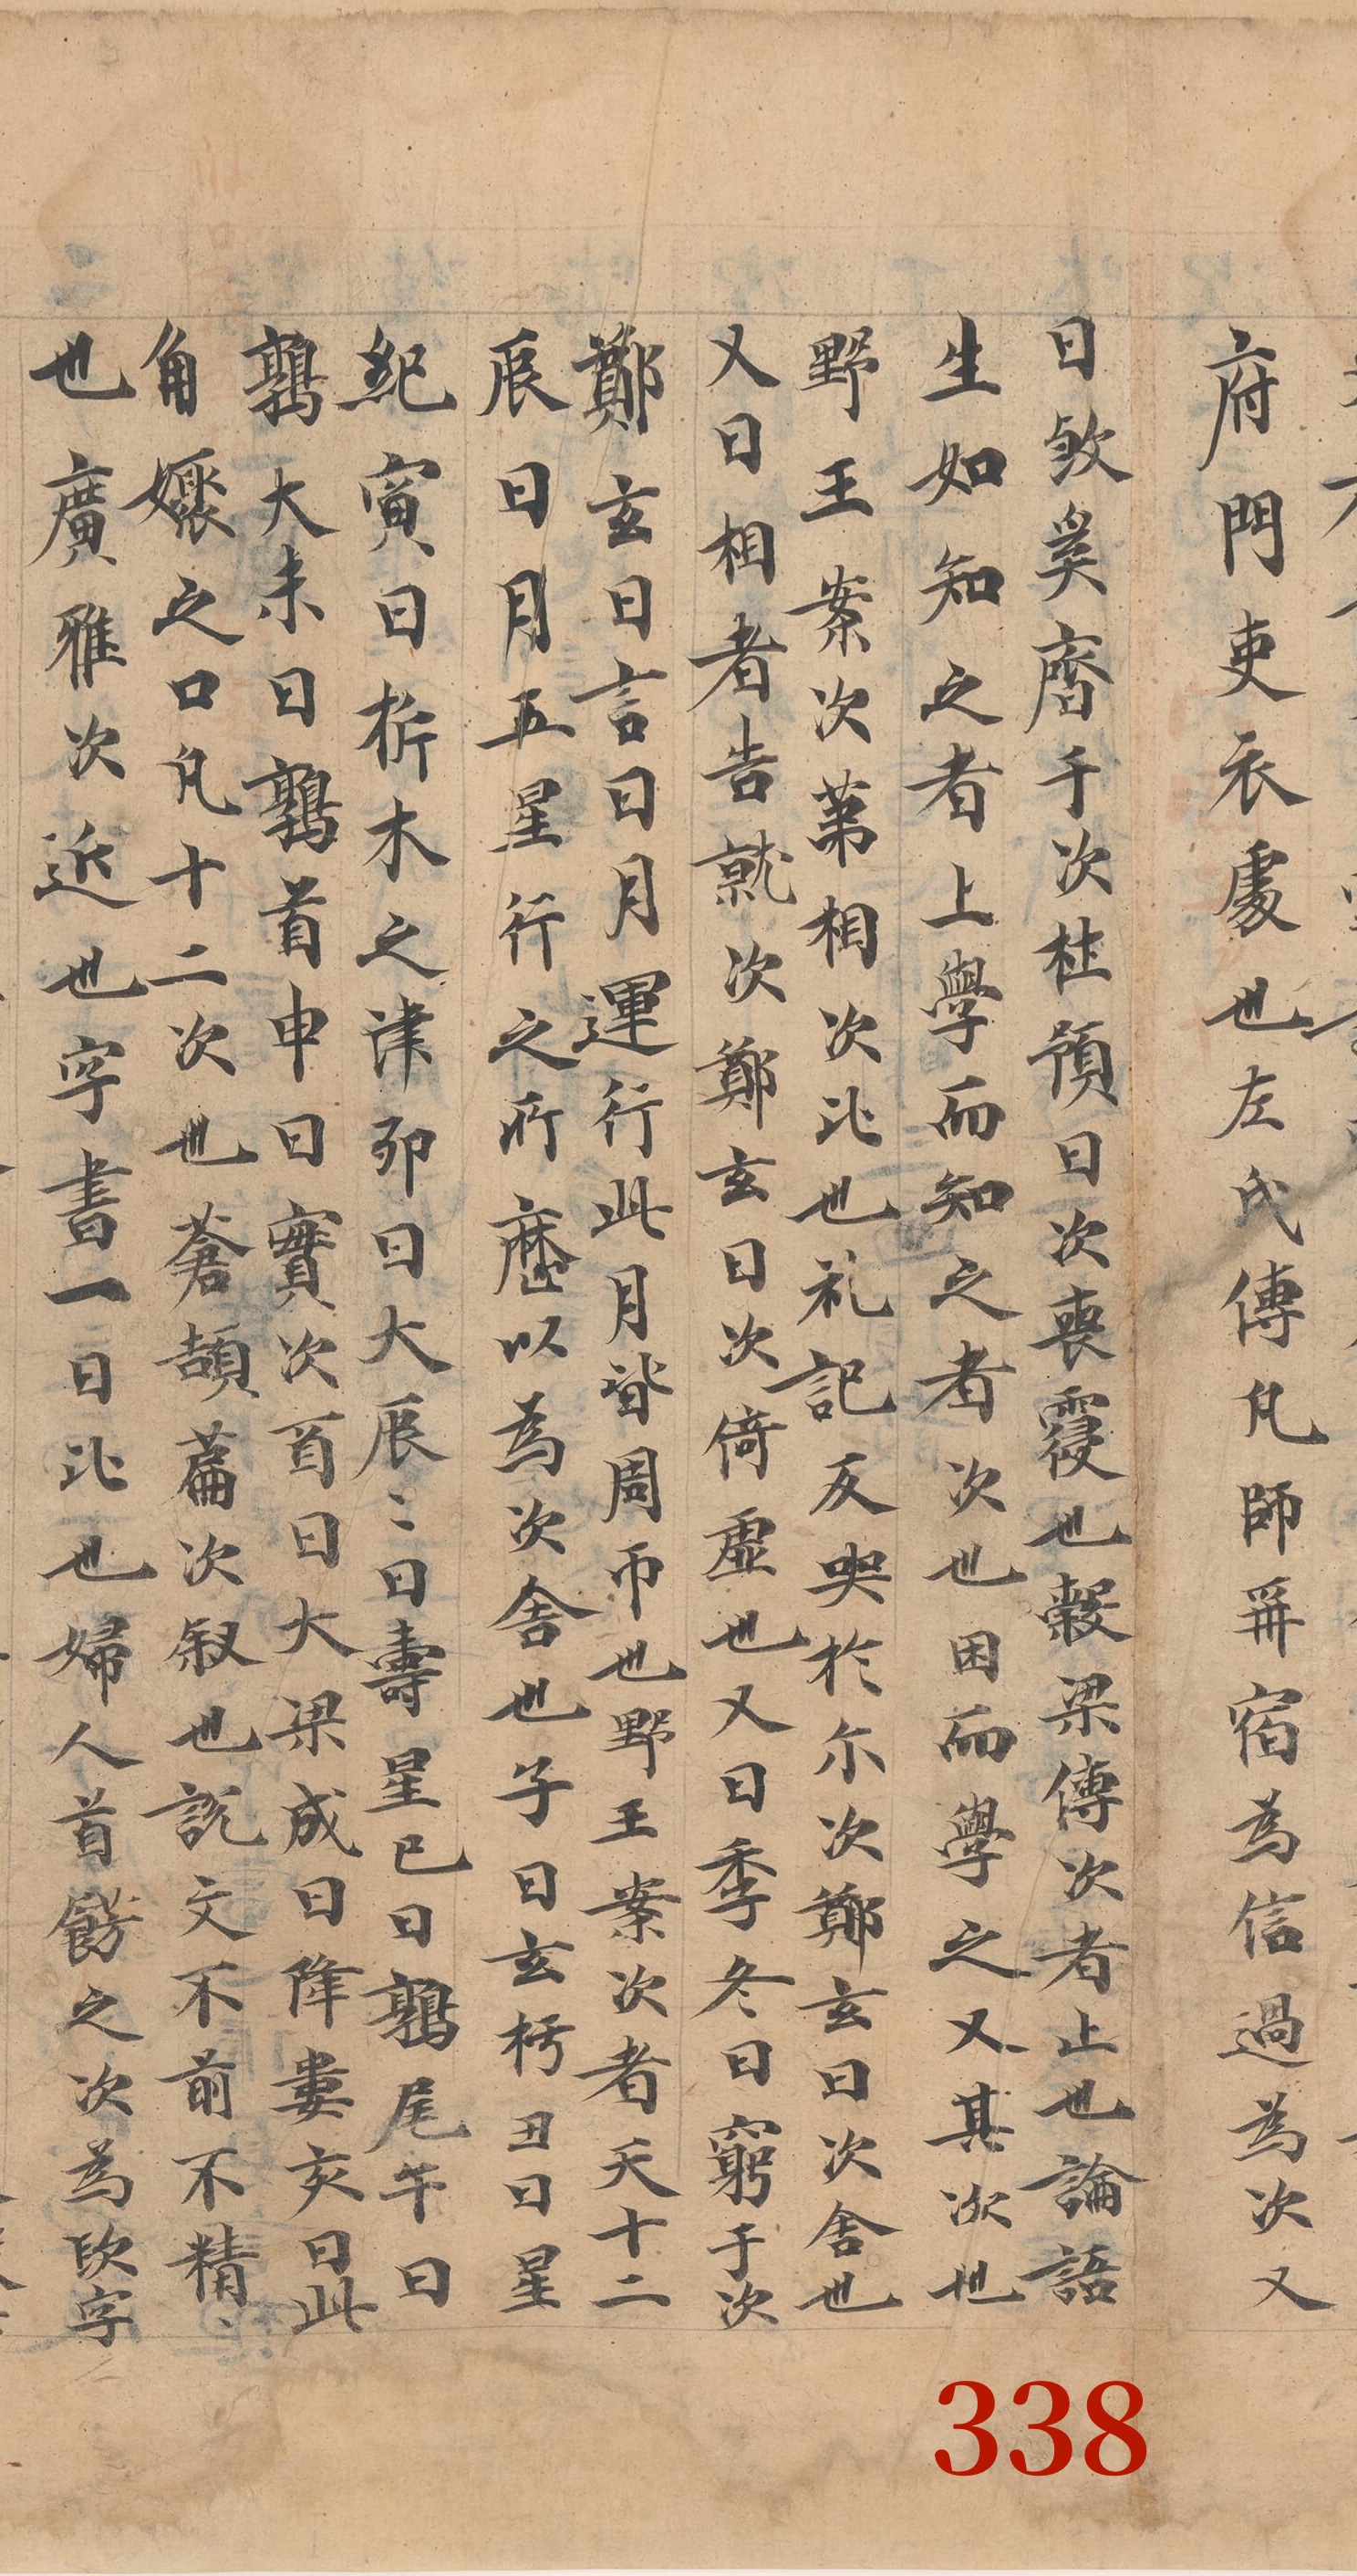 府門吏衣處也左氏傳凡師再宿爲信過爲次又
曰敓奚齊于次杜預曰次喪寢也穀梁傳次者止也論語
生如知之者上學而知之者次也困而學之又其次也
野王案次第相次比也礼記反哭於尓次鄭玄曰次舍也
又曰相者告就次鄭玄曰次倚虛也又曰季冬日窮于次
鄭玄曰言日月運行此月皆周帀也野王案次者天十二
辰日月五星行之所歷以爲次舍也子曰玄枵丑曰星
紀寅曰析木之津卯曰大辰〻曰壽星巳曰鶉尾午曰
鶉大未曰鶉首申曰實次酉曰大梁成曰降婁亥曰此
角孃之口凡十二次也蒼頡篇次叙也說文不前不精
也廣雅次近也字書一曰比也婦人首餝之次爲㳄字
338